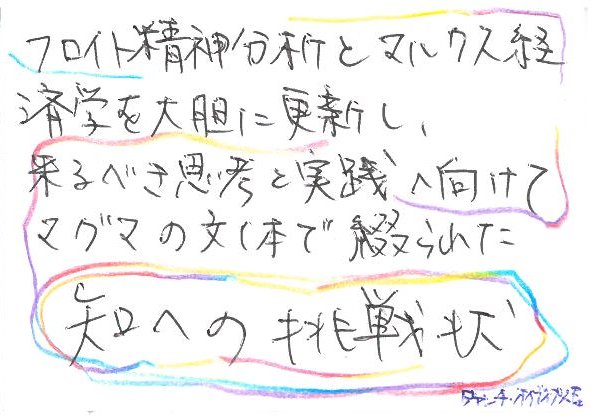 フロイト精神分析とマルクス経
済学を大胆に更新し、
来るべき思考と実践へ向けて
マグマの文体で綴られた
知への挑戦状